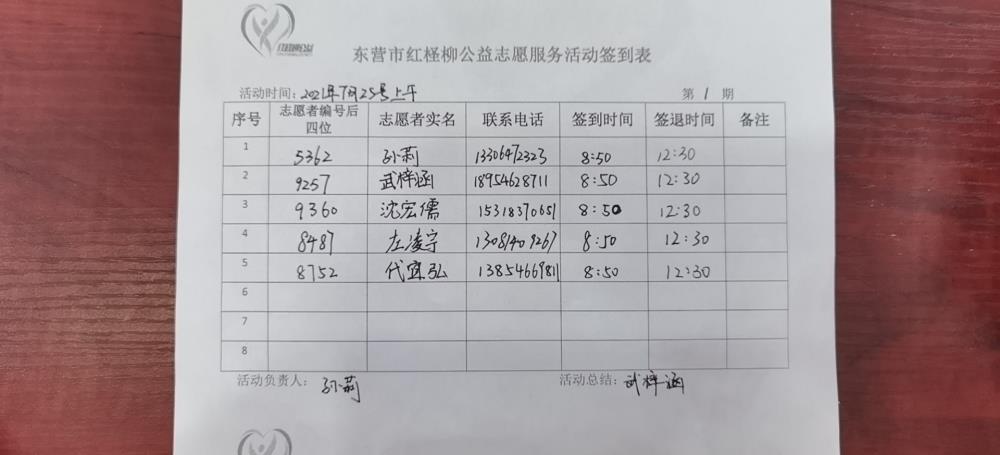 东营市红柽柳公益志愿服务活动签到表
活动时间：2021年7月25号上午 第 1 期
序号 志愿者编号后四位 志愿者实名 联系电话 签到时间 签退时间 备注
1 5362 孙莉 13306472323 8:50 12:30
2 9257 武梓涵 18954628711 8:50 12:30
3 9360 沈宏儒 15318370651 8:50 12:30
4 8487 左凌宇 13081409267 8:50 12:30
5 8752 代宜弘 13854669811 8:50 12:30
6
7
8
活动负责人： 孙莉 活动总结： 武梓涵